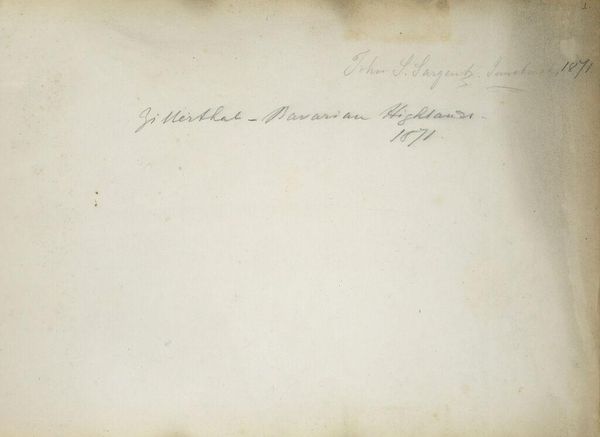 John S. Sargent. Innsbruck, 1871
Zillerthal - Bavarian Highlands.
1871.